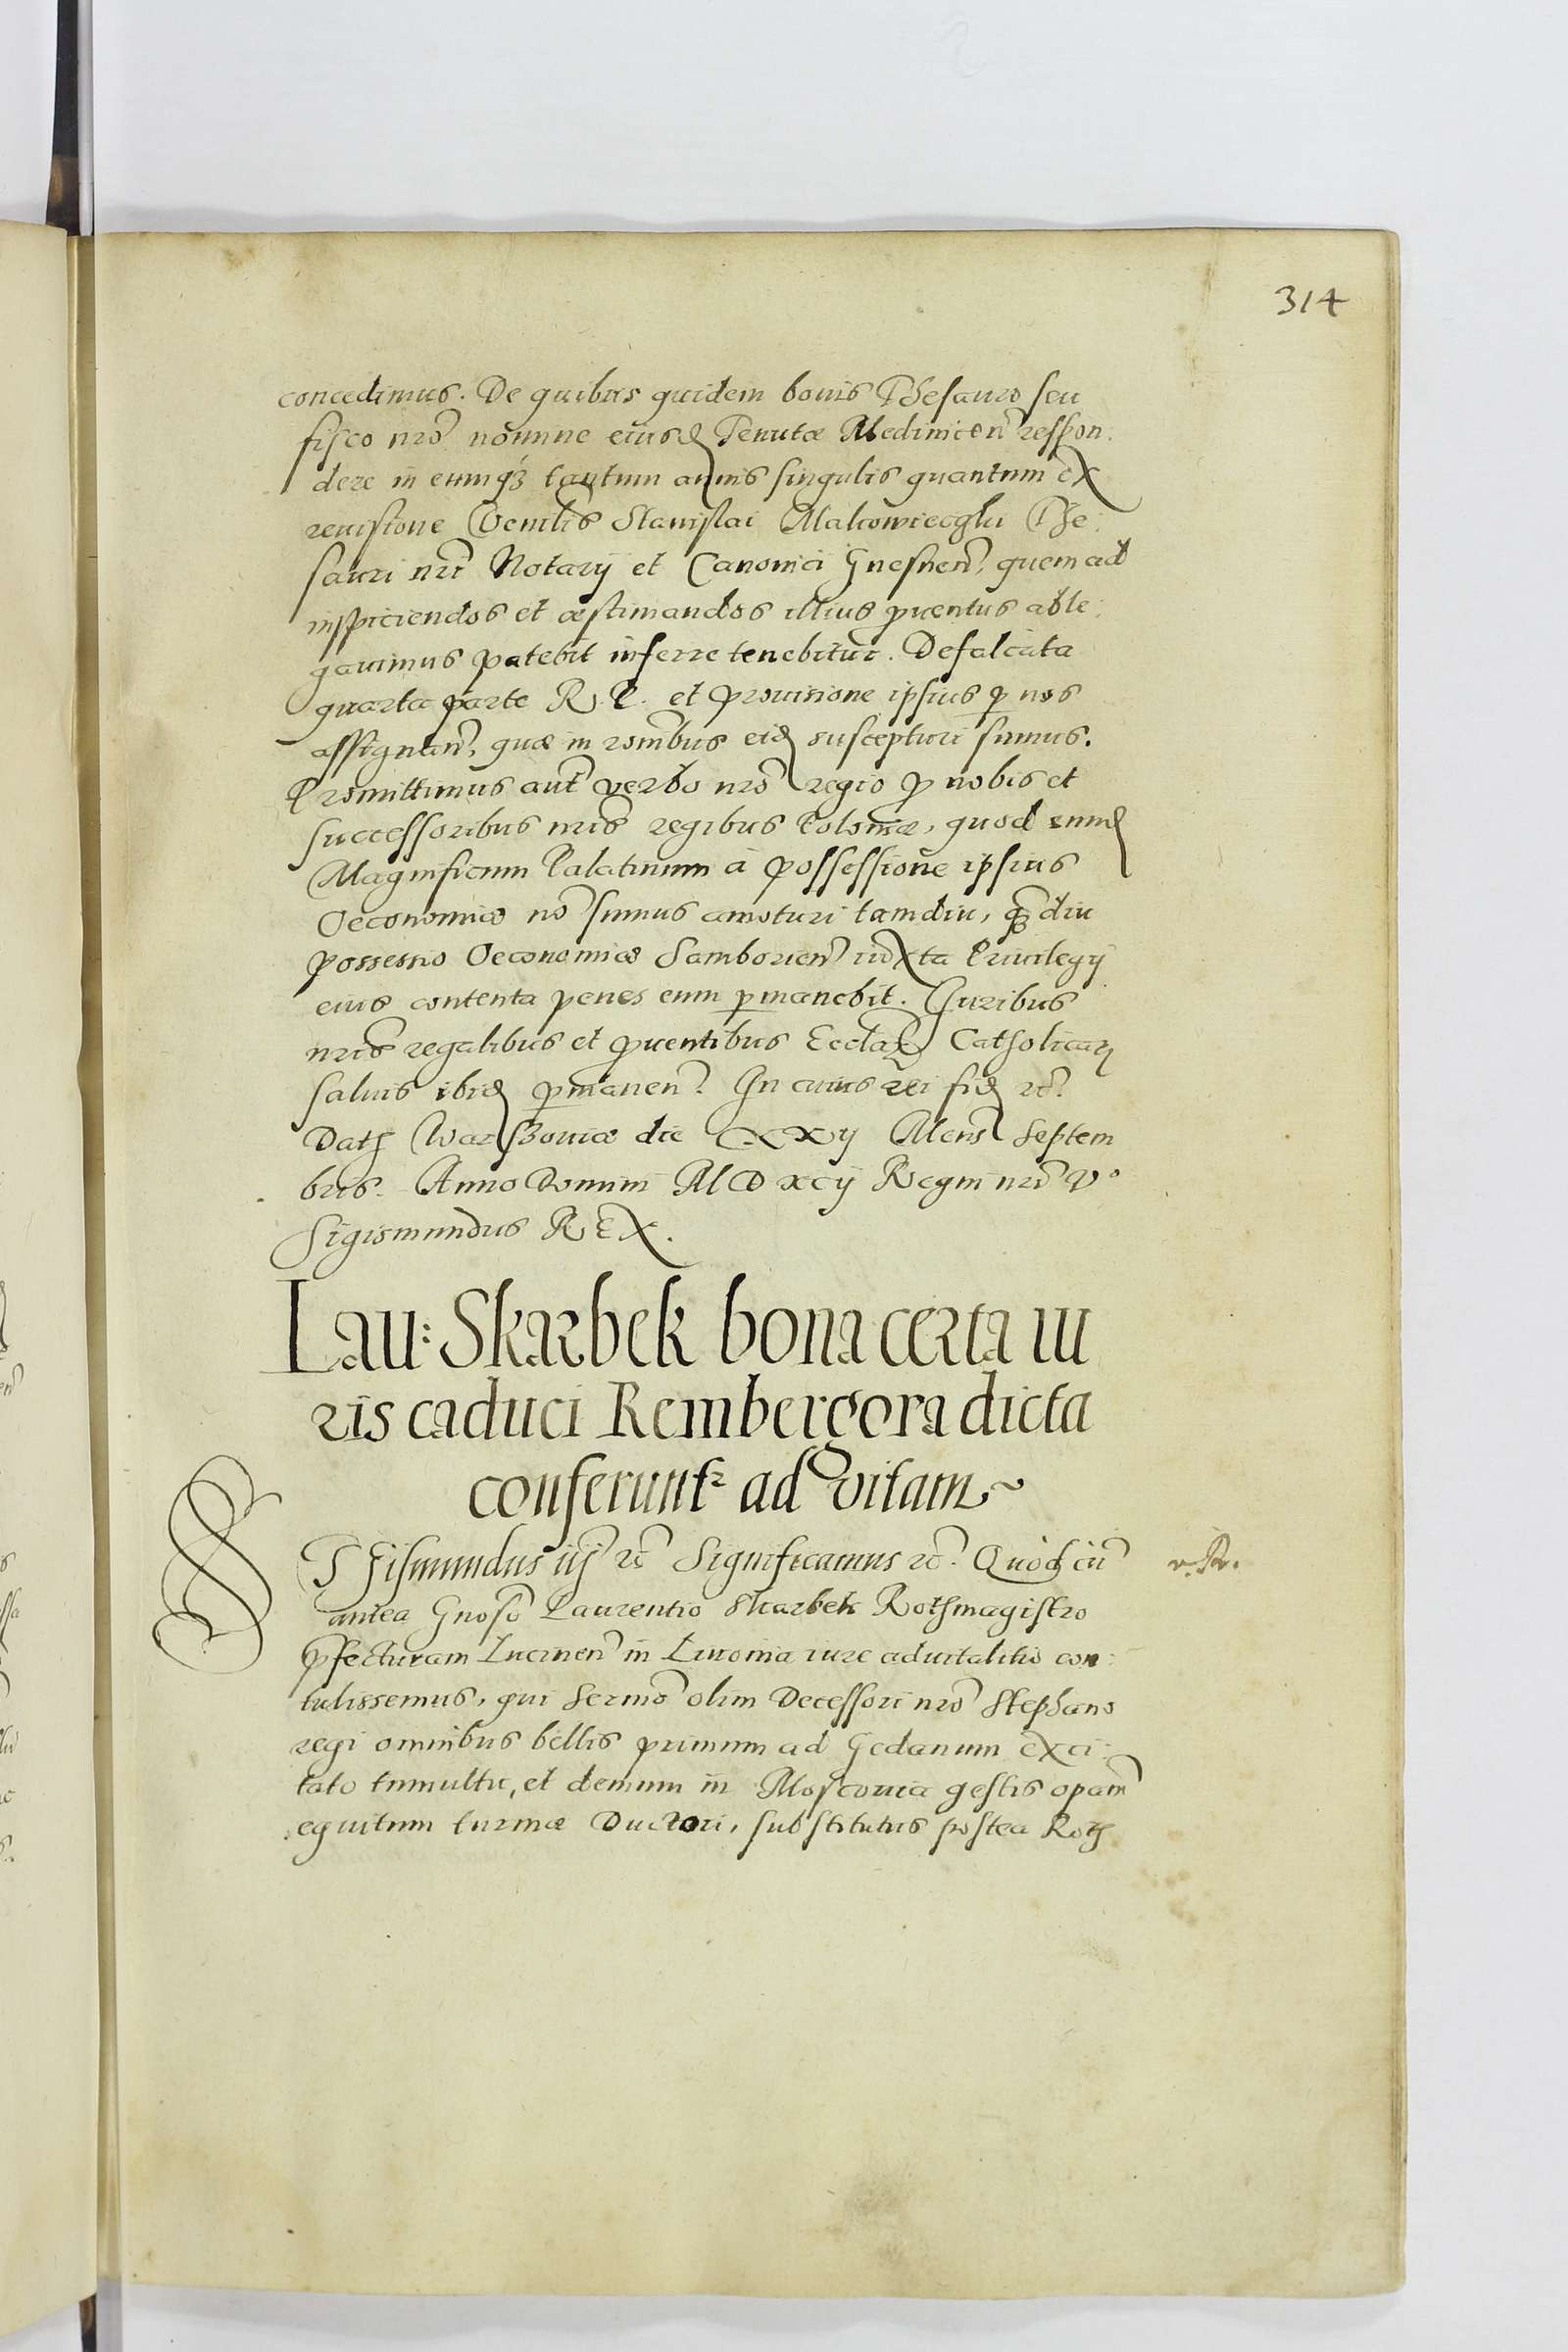 314
concedimus. De quibus quidem bonis Thesauro seu
fisco nrō nomine eiusd Tenutæ Medinicen̄ respon:
dere in eumq3 tantum annis singulis quantum ex
reuisione Venlis Stanislai Makowieczki The:
sauri nrī Notarij et Canonici Gnesnen̄, quem ad
inspiciendos et æstimandos illius prouentus able:
gauimus patebit inferre tenebitur. Defalcata
quarta parte R. P. et prouisione ipsius p nos
assignan̄, quæ in ronibus eid suscepturi sumus.
Promittimus aut̄ verbo nrō regio p nobis et
successoribus nris regibus Poloniæ, quod eund
Magnificum Palatinum à possessione ipsius
Oeconomiæ nō sumus amoturi tamdiu, q̃diu
possessio Oeconomiæ Samborien̄ iuxta Priuilegij
eius contenta penes eum pmanebit. Iuribus
nris regalibus et puentibus Ecclar Catholicar
saluis ibid pmanen̄. In cuius rei fid rc̄.
Dat Warszouiæ die XXXII Mens Septem
bris. Anno Domini M D xcij Regni nrī V°
Sigismundus REX.
Lau: Skarbek bona certa iu
ris caduci Rembergora dicta
conferunt ad vitam
SIgismundus iij rc̄ Significamus rc̄. Quod cū
antea Gnoso Laurentio Skarbek Rothmagistro
pfecturam Lucinen̄ in Liuonia iure aduitalitio con:
tulissemus, qui Sermō olim Decessori nrō Stephano
regi omnibus bellis primum ad Gedanum exci:
tato tumultu, et demum in Moscouia gestis opam̄
equitum turmæ Ductori, substitutus postea Roth